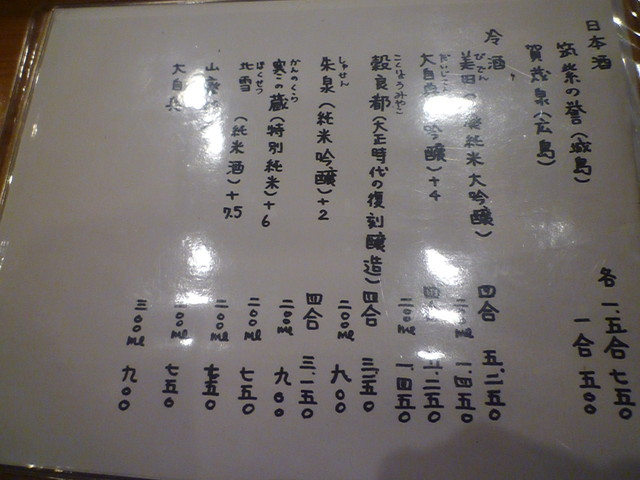 日本酒
筑紫の誉(城島)
賀茂泉(広島)
各 一.五合 七五〇
一合 五〇〇
冷酒
びでん
美田 純米大吟醸)
四合 五、二五〇
二〇〇ml 一、四五〇
だいじ
大自 吟醸)+4
四合 五、二五〇
二〇〇ml 一、四五〇
こくりょうみやこ
穀良都(大正時代の復刻醸造)
四合 三、一五〇
二〇〇ml 九〇〇
しゅせん
朱泉(純米吟醸)+2
四合 三、一五〇
かんのくら
寒の蔵(特別純米)+6
二〇〇ml 九〇〇
ほくせつ
北雪(純米酒)+7.5
二〇〇ml 七五〇
山
二〇〇ml 七五〇
大自
二〇〇ml 七五〇
二〇〇ml 九〇〇